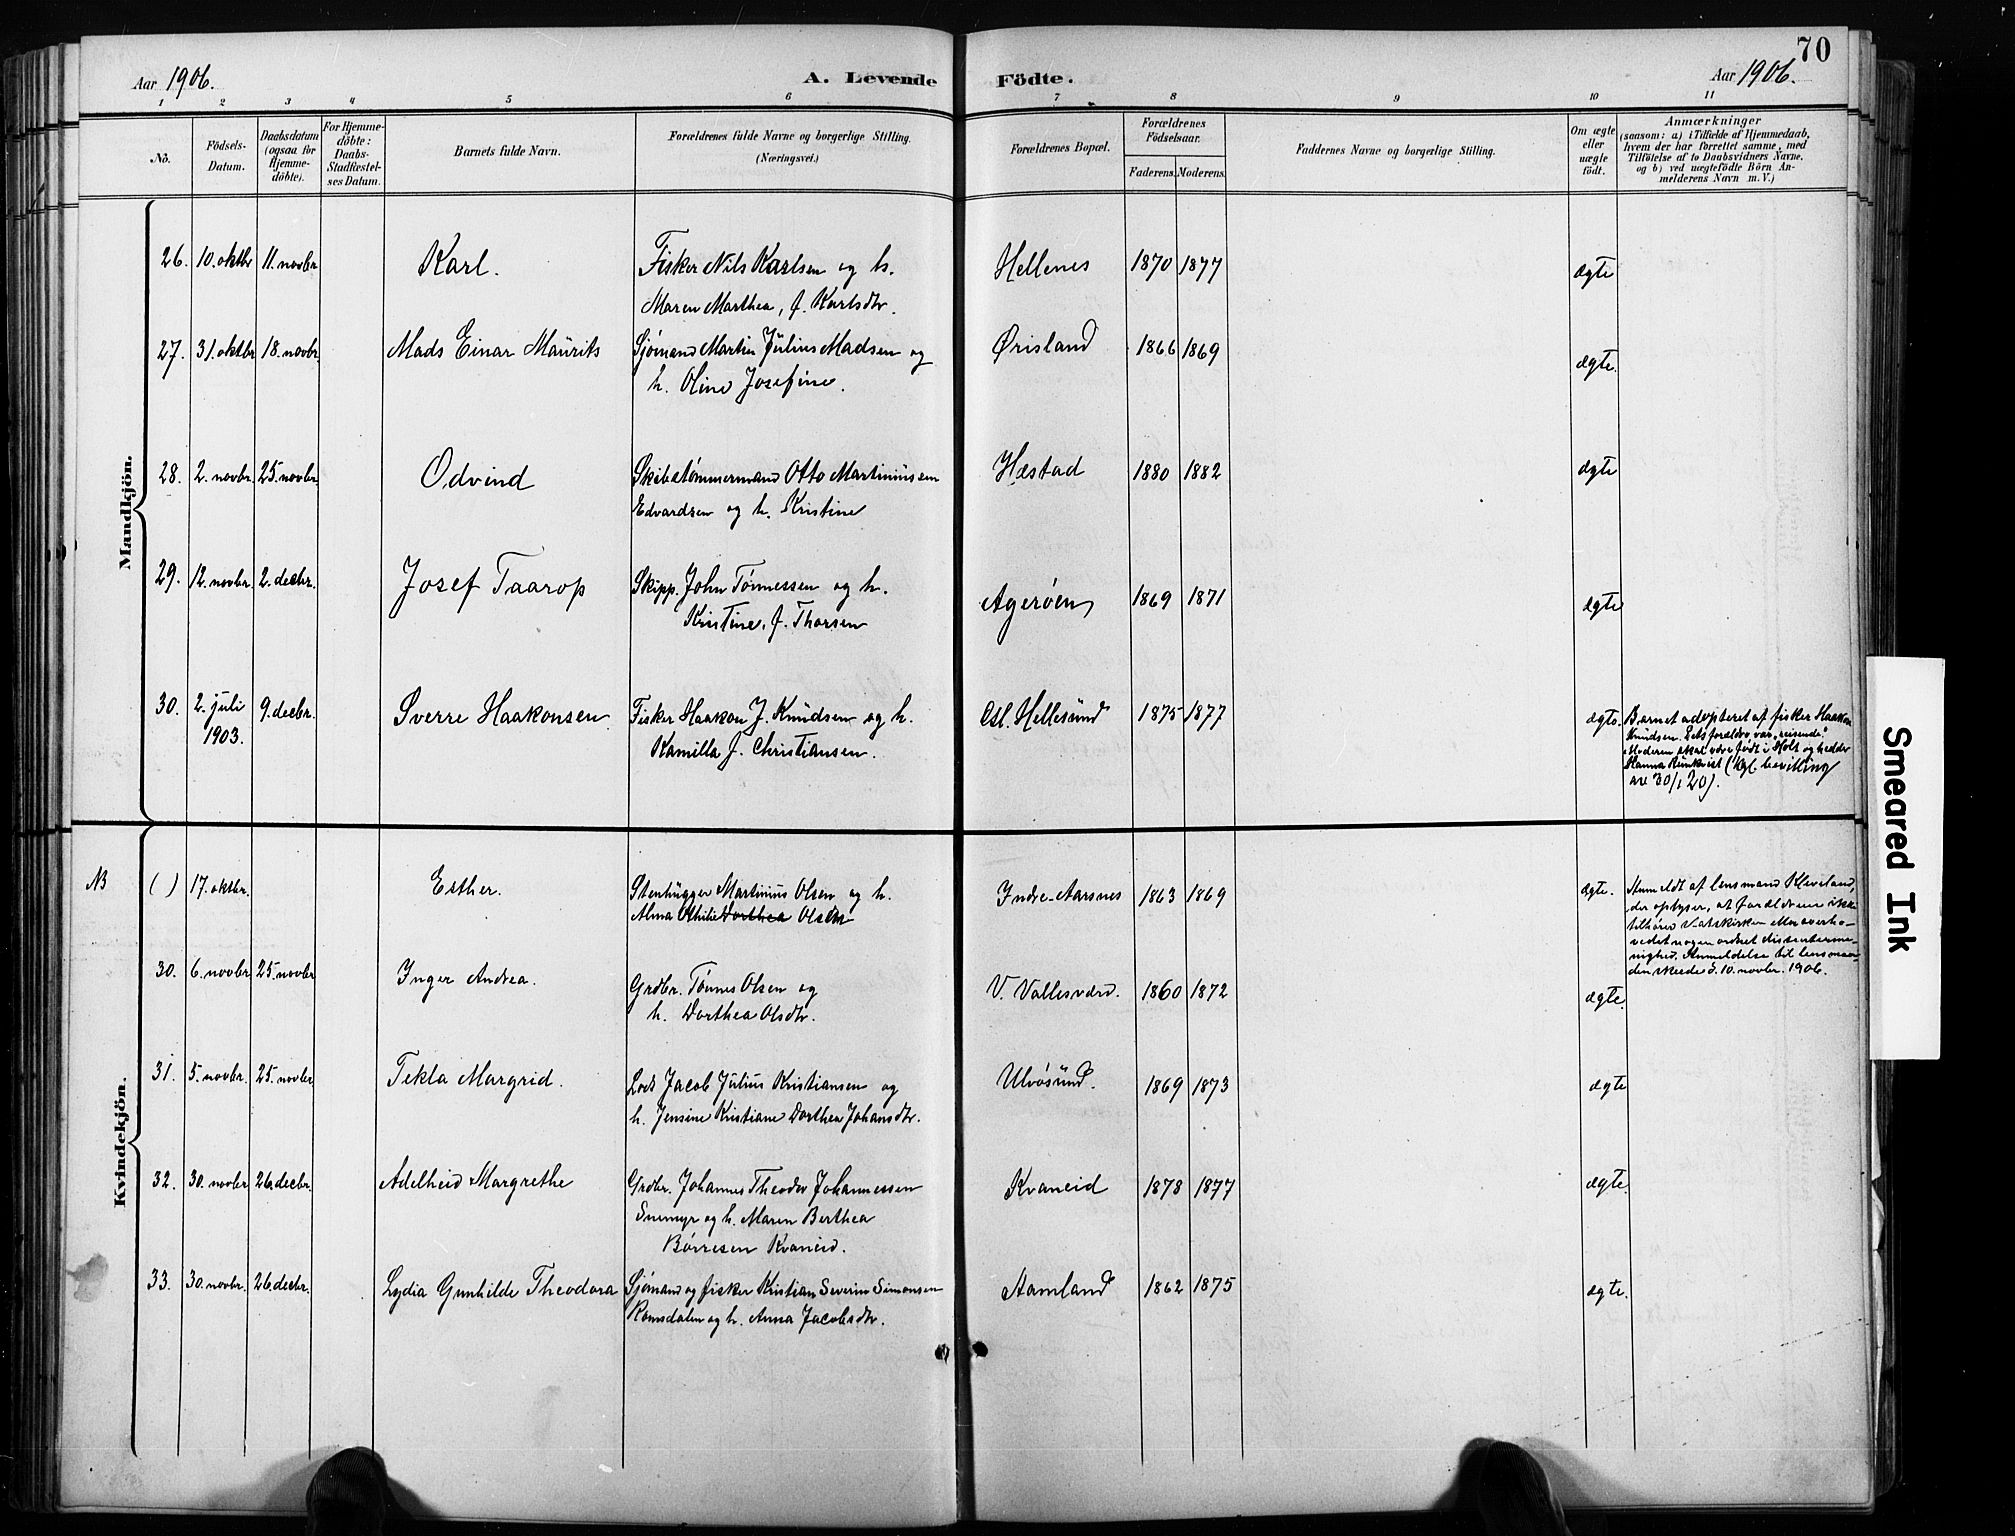 70
Aar 1906.
A. Levende Födte.
Aar 1906.
1 2 3 4 5 6 7 8 9 10 11
No.
Födsels-Datum.
Daabsdatum (ogsaa for Hjemme-döbte).
For Hjemme-döbte: Daabs-Stadfæstel-ses Datum.
Barnets fulde Navn.
Forældrenes fulde Navne og borgerlige Stilling. (Næringsvei.)
Forældrenes Bopæl.
Forældrenes Födselsaar.
Faderens. Moderens.
Faddernes Navne og borgerlige Stilling.
Om ægte eller uægte födt.
Anmærkninger
(saasom: a) i Tilfælde af Hjemmedaab,
hvem der har forrettet samme, med
Tilföielse af to Daabsvidners Navne,
og b) ved uægtefödte Börn An-
melderens Navn m. V.)
Mandkjön.
26. 10. oktbr 11. novbr. Karl. Fisker Nils Karlsen og h. Hellenes 1870 1877 ægte
Maren Marthea, f. Karlsdtr.
27. 31. oktbr 18. novbr. Mads Einar Maurits Sjømand Martin Julius Madsen og Ørisland 1866 1869 ægte.
h. Oline Josefine.
28. 2. novbr. 25. novbr. Odvind Skibstømmermand Otto Martiniussen Hæstad 1880 1882 ægte
Edvardsen og h. Kristine
29. 12. novbr. 2. decbr. Josef Taarop Skipp. John Tønnessen og h. Agerøen 1869 1871 ægte
Kristine, f. Thorsen
30. 2. juli 9. decbr. Sverre Haakonsen Fisker Haakon J. Knudsen og h. Østl. Hellesund 1875 1877 ægte.
1903. Kamilla f. Christiansen.
Barnet adopteret af fisker Haakon
Knudsen. Dets forældre var "reisende".
Moderen skal være født i Holt og hedder
Hanna (Kgl. bevilling
av 30/1 20).
Kvindekjön.
NB ( ) 17. oktbr. Esther. Stenhugger Martinius Olsen og h. Indre-Aarsnes 1863 1869 ægte.
Alma Othilie Dorthea Olsen
Anmeldt af lensmand Kleveland,
der oplyser, at forældrene ikke
tilhører Statskirken eller overho-
vedet nogen ordnet dissenterme-
nighed. Anmeldelse til lensman-
den skeede d. 10. novbr. 1906.
30. 6. novbr 25. novbr Inger Andrea. Grdbr. Tønnes Olsen og V. Vallesværd. 1860 1872 ægte.
h. Dorthea Olsdtr.
31. 5. novbr. 25. novbr Tekla Margrid. Lods Jacob Julius Kristiansen og Ulvøsund. 1869 1873 ægte
h. Jensine Kristiane Dorthea Johansdtr.
32. 30. novbr. 26. decbr. Adelheid Margrethe Grdbr. Johannes Theodor Johannessen Kvaneid 1878 1877 ægte.
Snemyr og h. Maren Berthea
Børresen Kvaneid.
33. 30. novbr. 26. decbr. Lydia Gunhilde Theodora Sjømand og fisker Kristian Severin Simonsen Aamland 1862 1875 ægte.
Romsdalen og h. Anna Jacobsdtr.
Smeared Ink